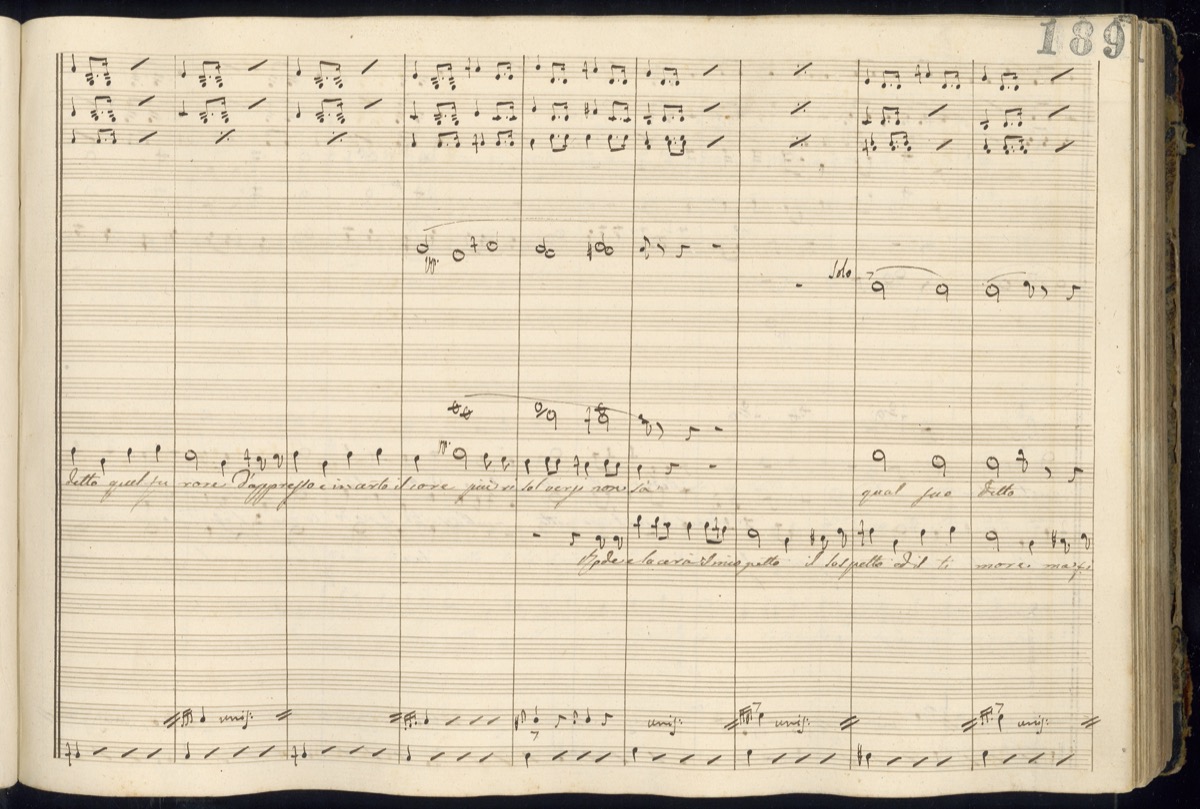 189
pp:
Solo
pp.
detto qual fu rore D'appresso e incerto il core più risolversi non sa qual suo detto
Rode e lacera il mio petto il sospetto ed il ti more ma si
unis: unis: unis: unis: